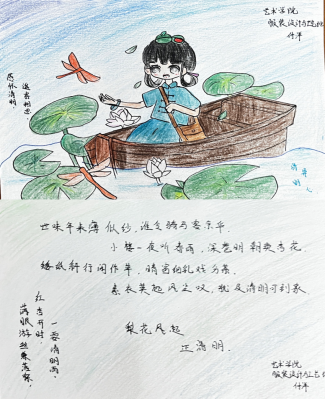 艺术学院
服装设计与工艺
任萍
感怀清明
追寄相思
清明
世味年来薄似纱,谁令骑马客京华。
小楼一夜听春雨,深巷明朝卖杏花。
矮纸斜行闲作草,晴窗细乳戏分茶。
素衣莫起风尘叹,犹及清明可到家。
梨花风起
正清明
红杏开时
一霎清明雨
艺术学院
服装设计与工艺
任萍